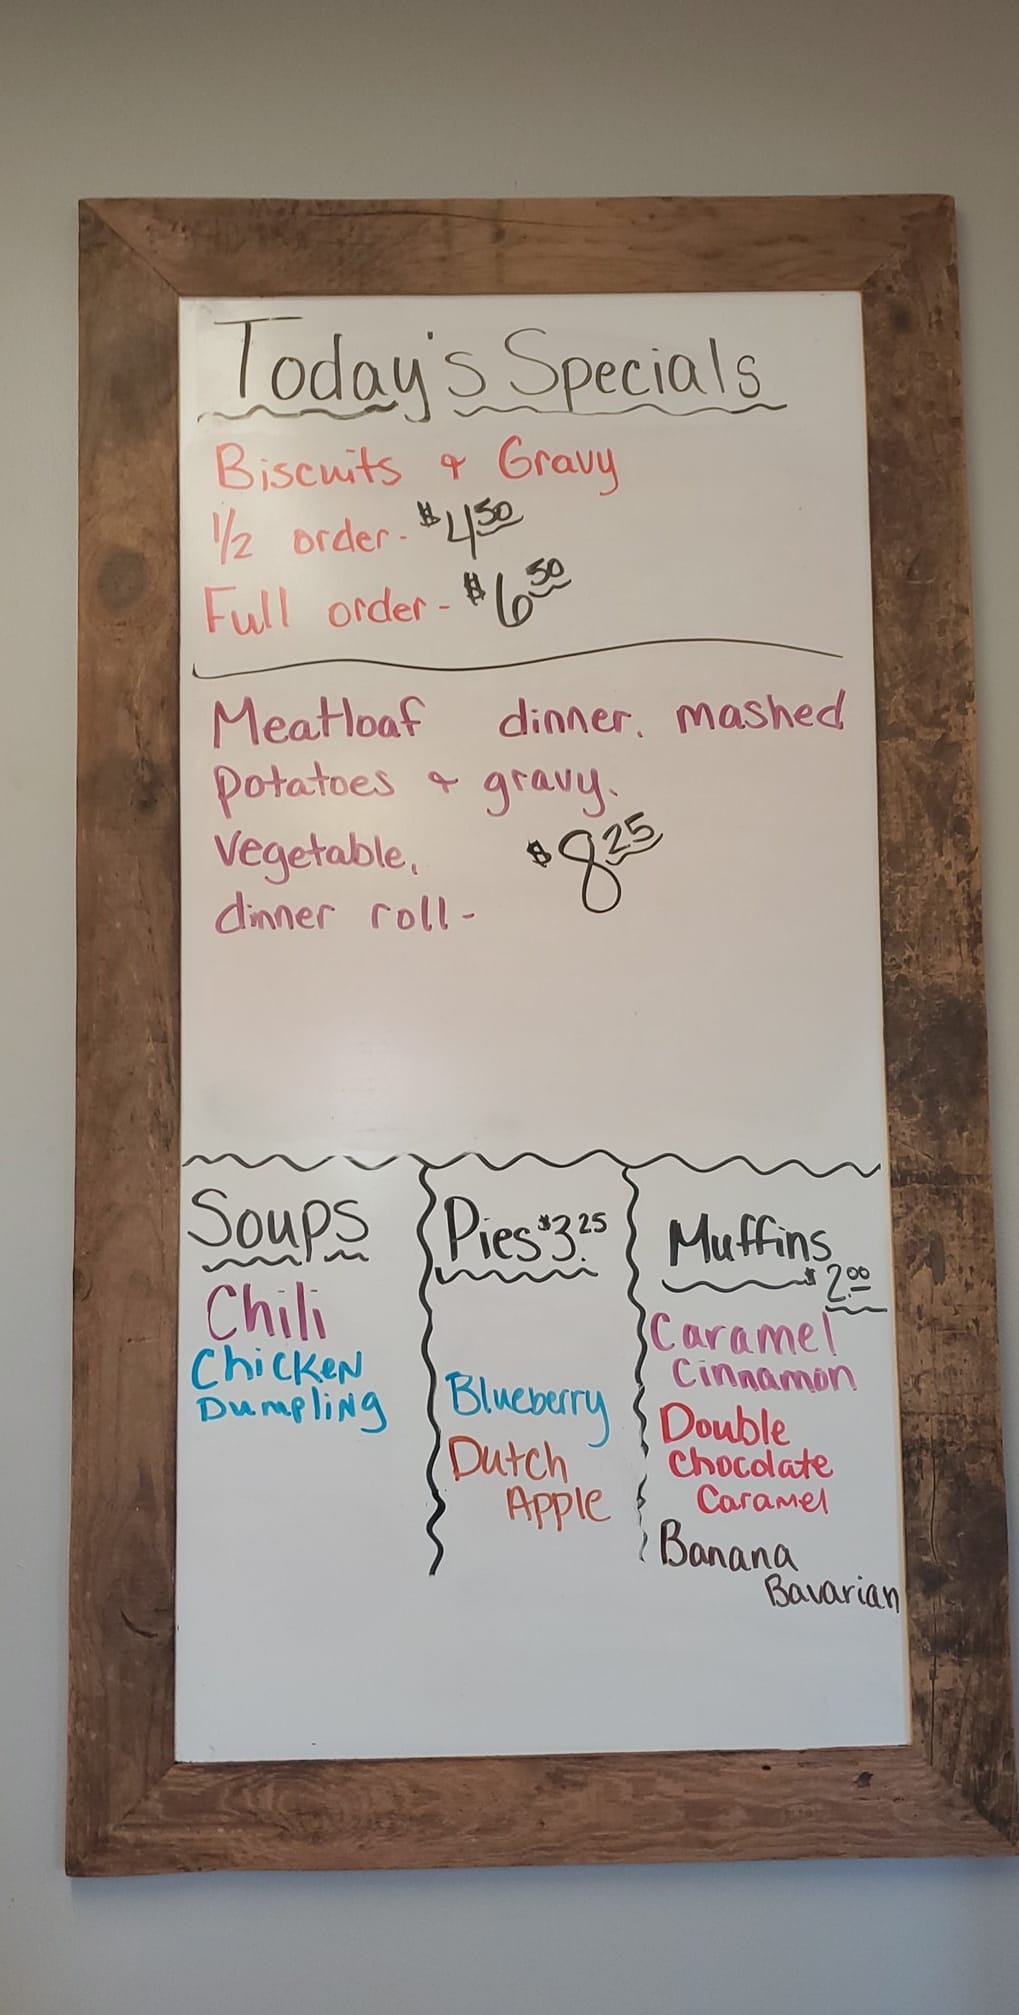 Today's Specials
Biscuits & Gravy
1/2 order - $4.50
Full order - $6.50
Meatloaf dinner, mashed
potatoes & gravy,
vegetable,
dinner roll - $8.25
Soups
Chili
Chicken
Dumpling
Pies $3.25
Blueberry
Dutch
Apple
Muffins
$2.00
Caramel
Cinnamon
Double
Chocolate
Caramel
Banana
Bavarian